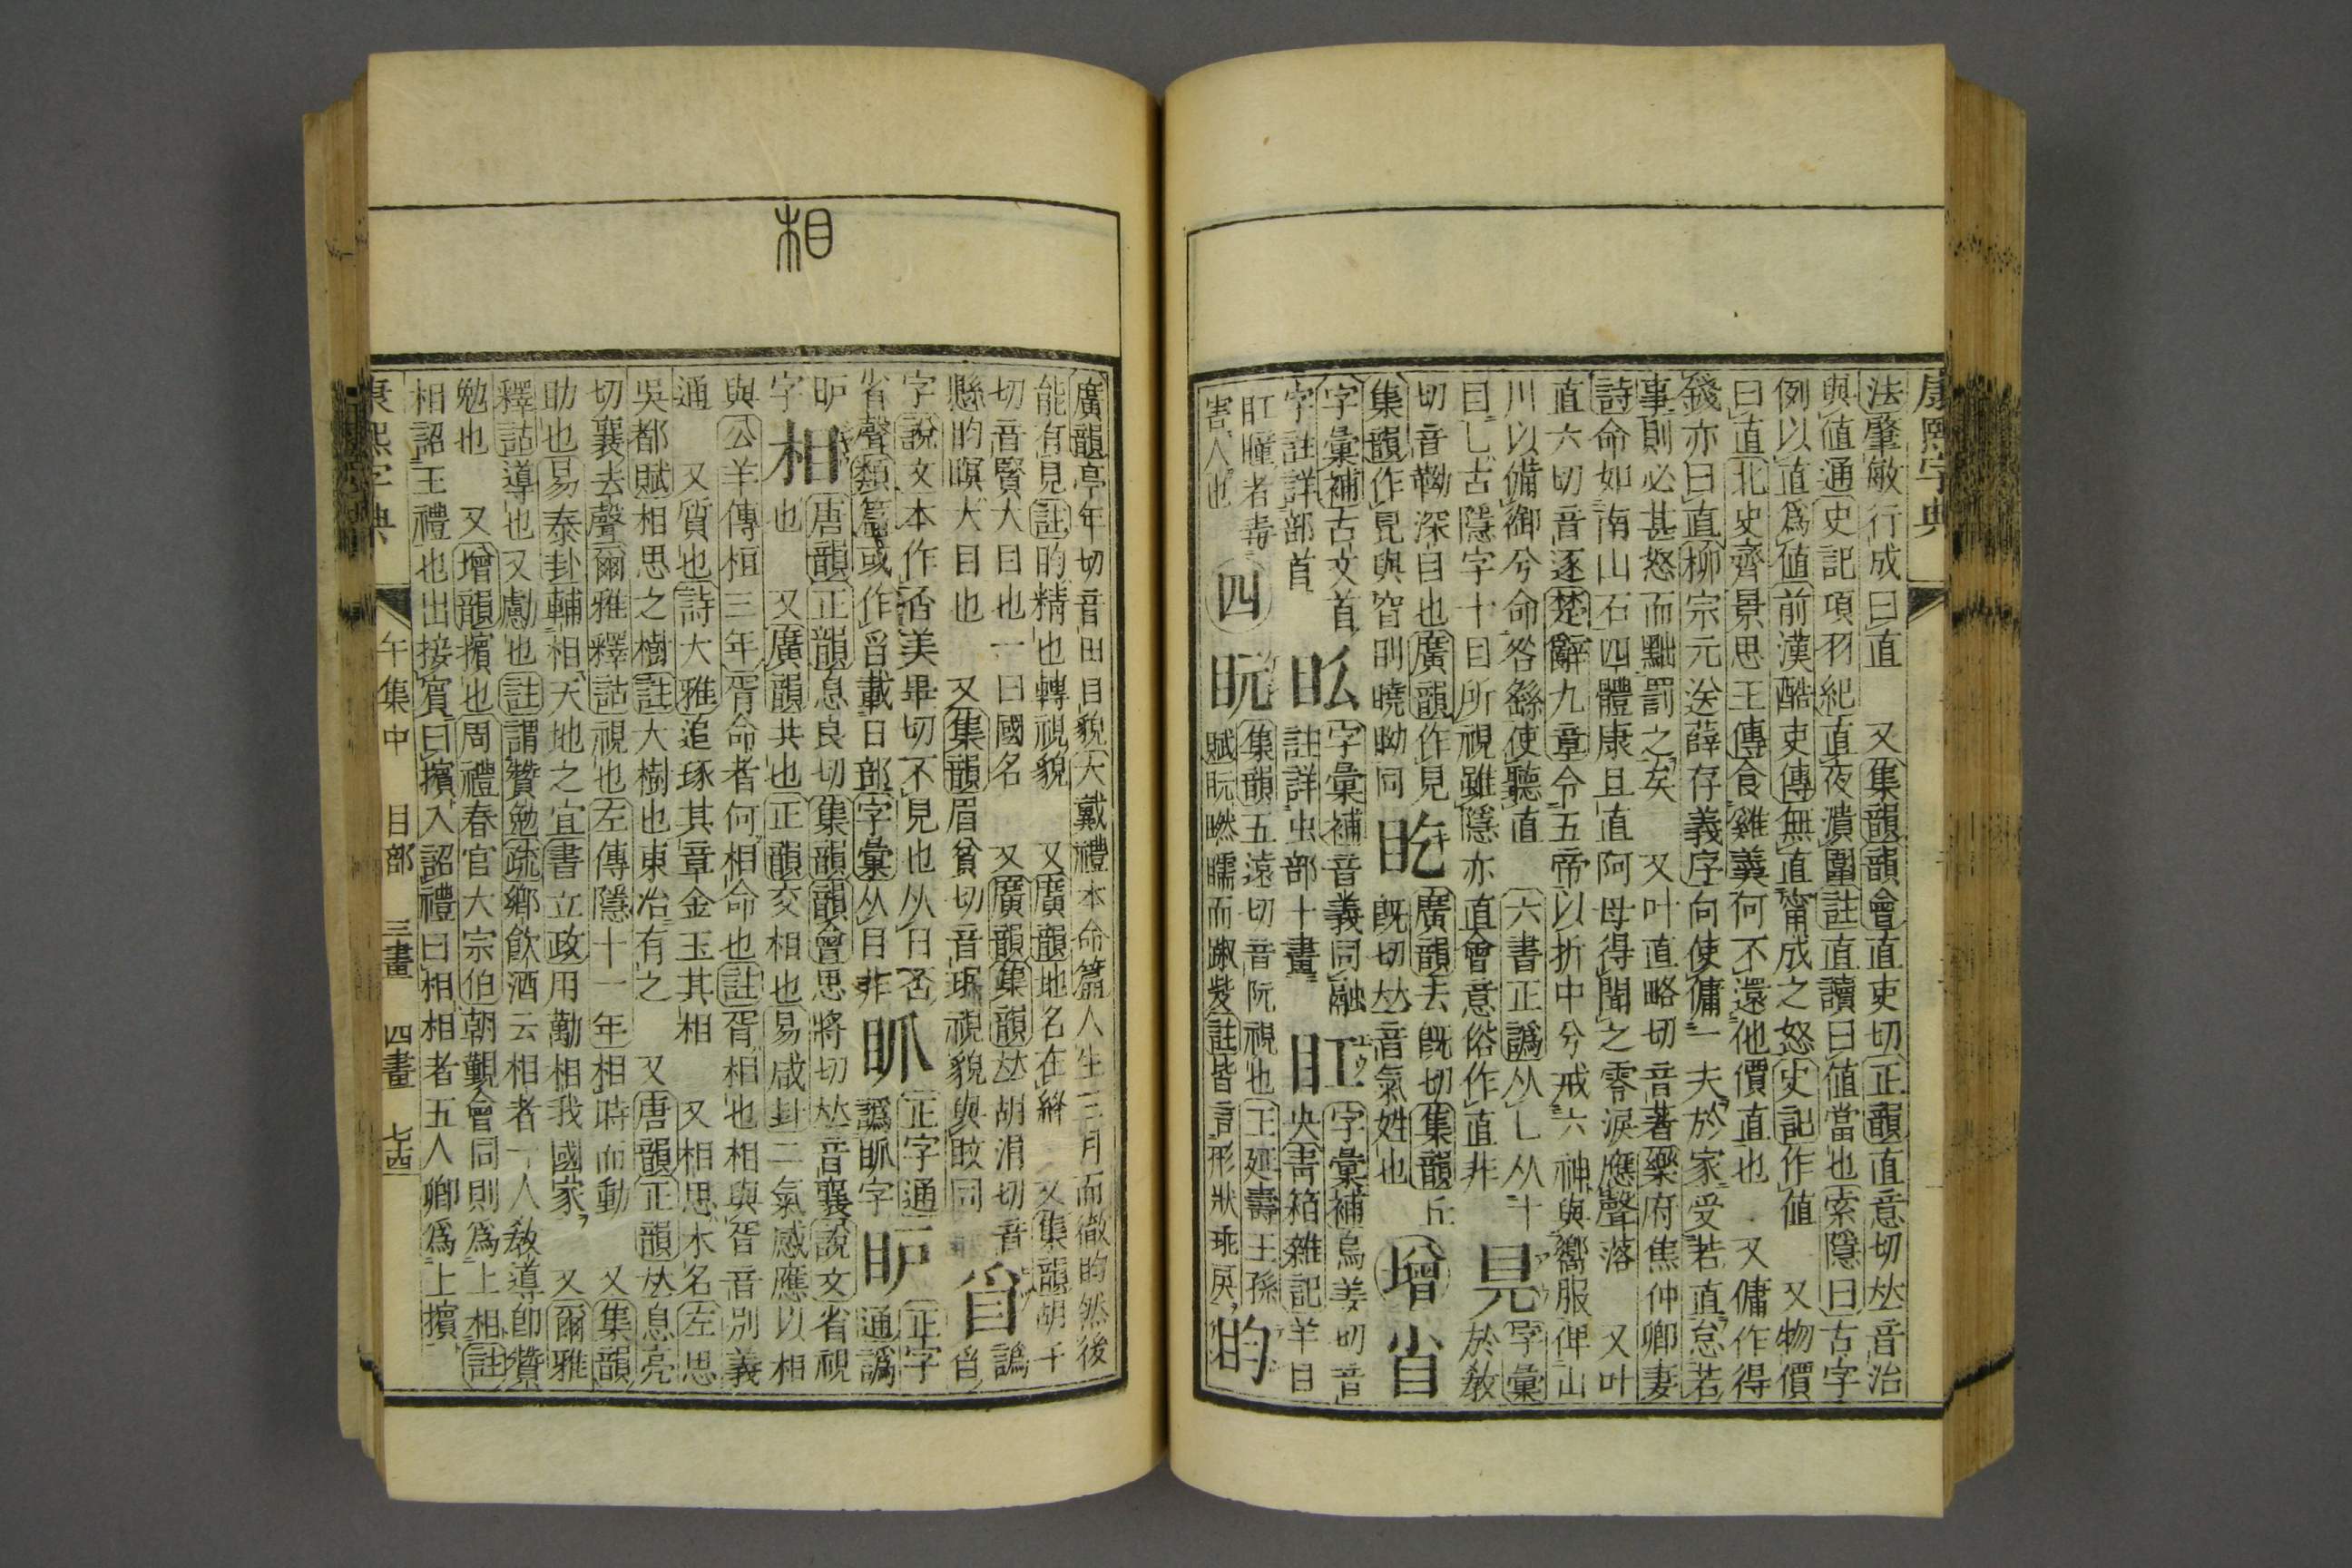 康熙字典
法肇敏行成曰直　又集韻韻會直吏切正韻直意切𠀤音治
與値通史記項羽紀直夜潰圍註直讀曰値當也索隱曰古字
例以直爲値前漢酷吏傳無直甯成之怒史記作値　又物價
曰直北史齊景思王傳食雞羹何不還他價直也　又傭作得
錢亦曰直柳宗元送薛存義序向使傭一夫於家受若直怠若
事則必甚怒而黜罰之矣　又叶直略切音著樂府焦仲卿妻
詩命如南山石四體康且直阿母得聞之零淚應聲落　又叶
直六切音逐楚辭九章令五帝以折中兮戒六神與嚮服俾山
川以備御兮命咎繇使聽直　六書正譌从乚从十
目乚古隱字十目所視雖隱亦直會意俗作直非　𥃭　字彙於敎
切音靿深目也廣韻作見
集韻作見與窅𥄎䁱眑同　盵　廣韻去旣切集韻丘旣切𠀤音氣姓也　增　𥃲
字彙補古文首字註詳部首　𥃳　字彙補音義同融註詳虫部十畫　𥃵　字彙補烏姜切音央靑箱雜記羊目
𥃵瞳者毒害人也　四　盶　集韻五遠切音阮視也王延壽王孫賦盶瞇䁪而踧䟣註皆言形狀乖戾　盷
廣韻亭年切音田目貌大戴禮本命篇人生三月而徹盷然後
能有見註盷精也轉視貌　又廣韻地名在絳　又集韻胡千
切音賢大目也一曰國名　又廣韻集韻𠀤胡涓切音
懸盷瞑大目也　又集韻眉貧切音珉視貌與旼同　𥄂　譌𥄂
字說文本作否美畢切不見也从日否
省聲類篇或作𥄂載日部字彙从目非　𥄄　正字通譌眽字　𥃾　正字通譌
𥃾字　相　唐韻正韻息良切集韻韻會思將切𠀤音襄說文省視
也　又廣韻共也正韻交相也易咸卦二氣感應以相
與公羊傳桓三年胥命者何相命也註胥相也相與胥音別義
通　又質也詩大雅追琢其章金玉其相　又相思木名左思
吳都賦相思之樹註大樹也東冶有之　又唐韻正韻𠀤息亮
切襄去聲爾雅釋詁視也左傳隱十一年相時而動　又集韻
助也易泰卦輔相天地之宜書立政用勱相我國家　又爾雅
釋詁導也又勴也註謂贊勉疏鄉飲酒云相者一人敎導卽贊
勉也　又增韻擯也周禮春官大宗伯朝覲會同則爲上相註
相詔王禮也出接賓曰擯入詔禮曰相相者五人卿爲上擯
康熙字典　午集中　目部　三畫　四畫　七四
相